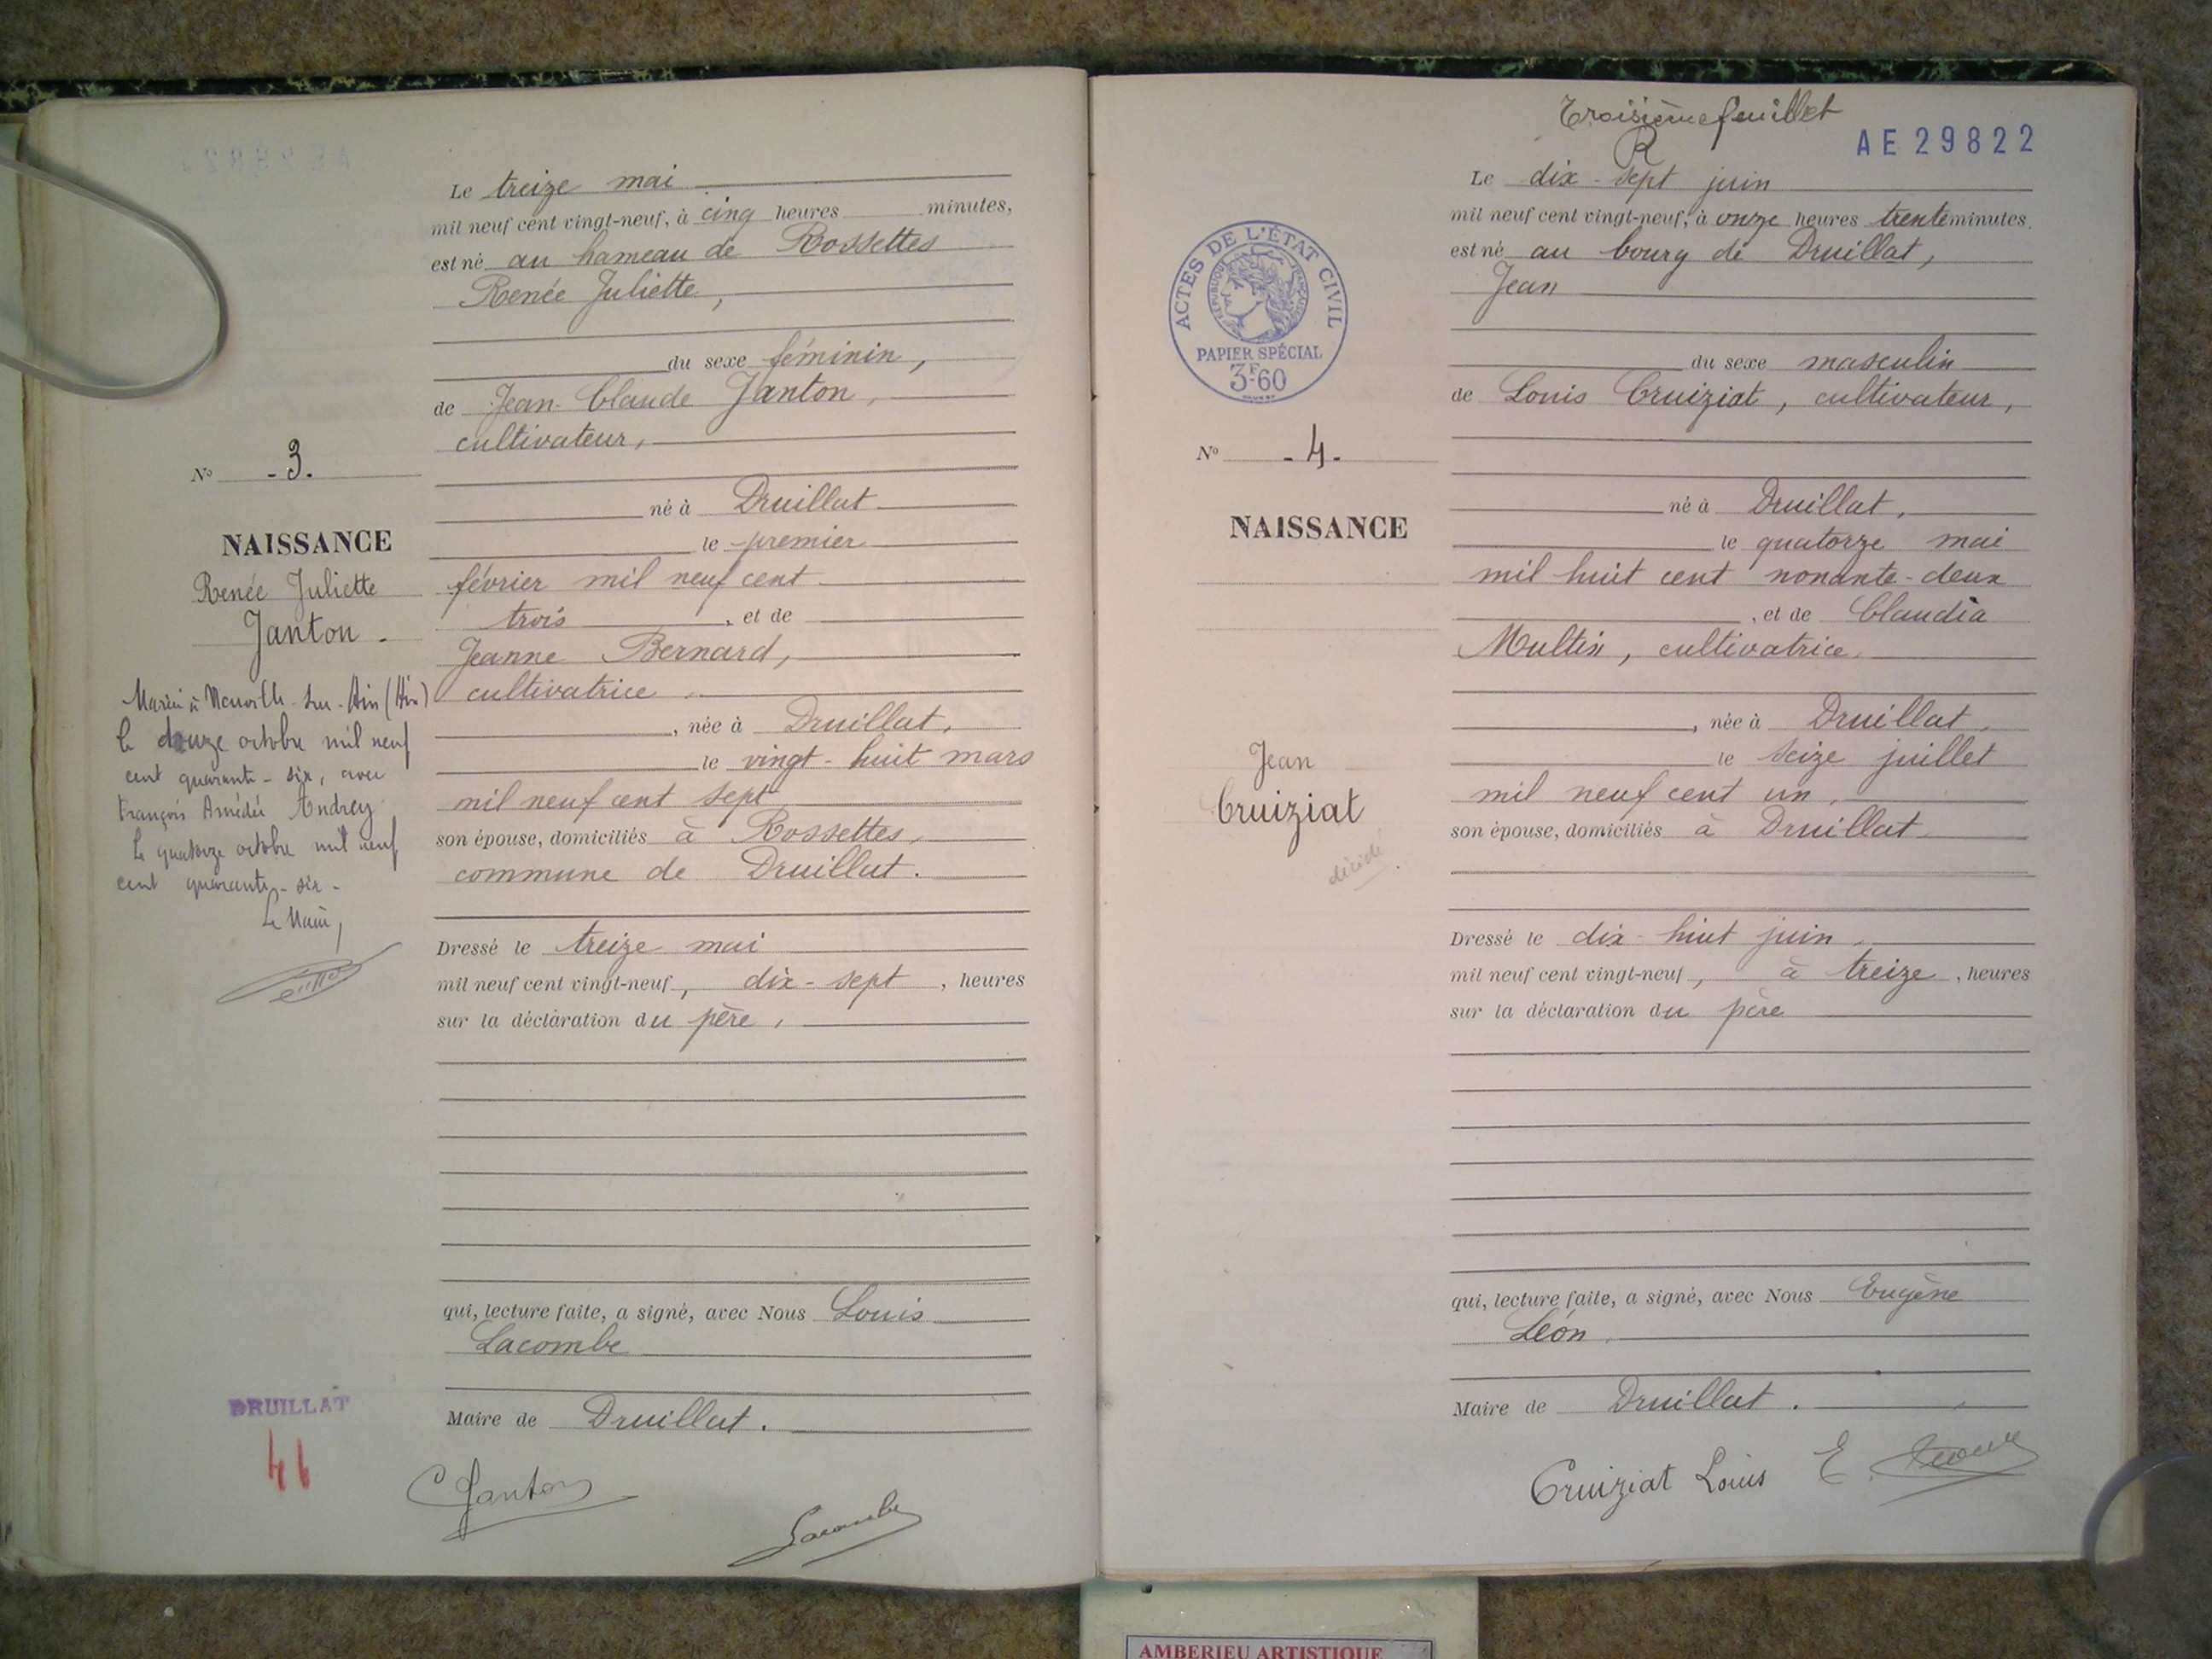 Le treize mai
mil neuf cent vingt-neuf, à cinq heures minutes,
est né au hameau de Rossettes
Renée Juliette,
du sexe féminin,
de Jean-Claude Janton,
cultivateur,
né à Druillat
le premier
février mil neuf cent
trois, et de
Jeanne Bernard,
cultivatrice
, née à Druillat,
le vingt-huit mars
mil neuf cent sept
son épouse, domiciliés à Rossettes,
commune de Druillat.
Dressé le treize mai
mil neuf cent vingt-neuf, dix-sept, heures
sur la déclaration du père,
qui, lecture faite, a signé, avec Nous Louis
Lacombe
Maire de Druillat.
C Janton
Lacombe
No -3.
NAISSANCE
Renée Juliette
Janton.
Marié à Neuville-sur-Ain (Ain)
le douze octobre mil neuf
cent quarante-six, avec
François Amédée Andrey
Le quatorze octobre mil neuf
cent quarante-six-
Le Maire,
DRUILLAT
46
Troisième feuillet
R
AE 29822
Le dix-sept juin
mil neuf cent vingt-neuf, à onze heures trente minutes.
est né au bourg de Druillat,
Jean
du sexe masculin
de Louis Cruiziat, cultivateur,
né à Druillat,
le quatorze mai
mil huit cent nonante-deux
, et de Claudia
Multin, cultivatrice,
, née à Druillat,
le seize juillet
mil neuf cent un,
son épouse, domiciliés à Druillat
Dressé le dix-huit juin,
mil neuf cent vingt-neuf, à treize, heures
sur la déclaration du père
qui, lecture faite, a signé, avec Nous Eugène
Léon.
Maire de Druillat.
Cruiziat Louis E.
ACTES DE L'ÉTAT CIVIL
RÉPUBLIQUE FRANÇAISE
PAPIER SPÉCIAL
3F.60
No -4.
NAISSANCE
Jean
Cruiziat
AMBERIEU ARTISTIQUE